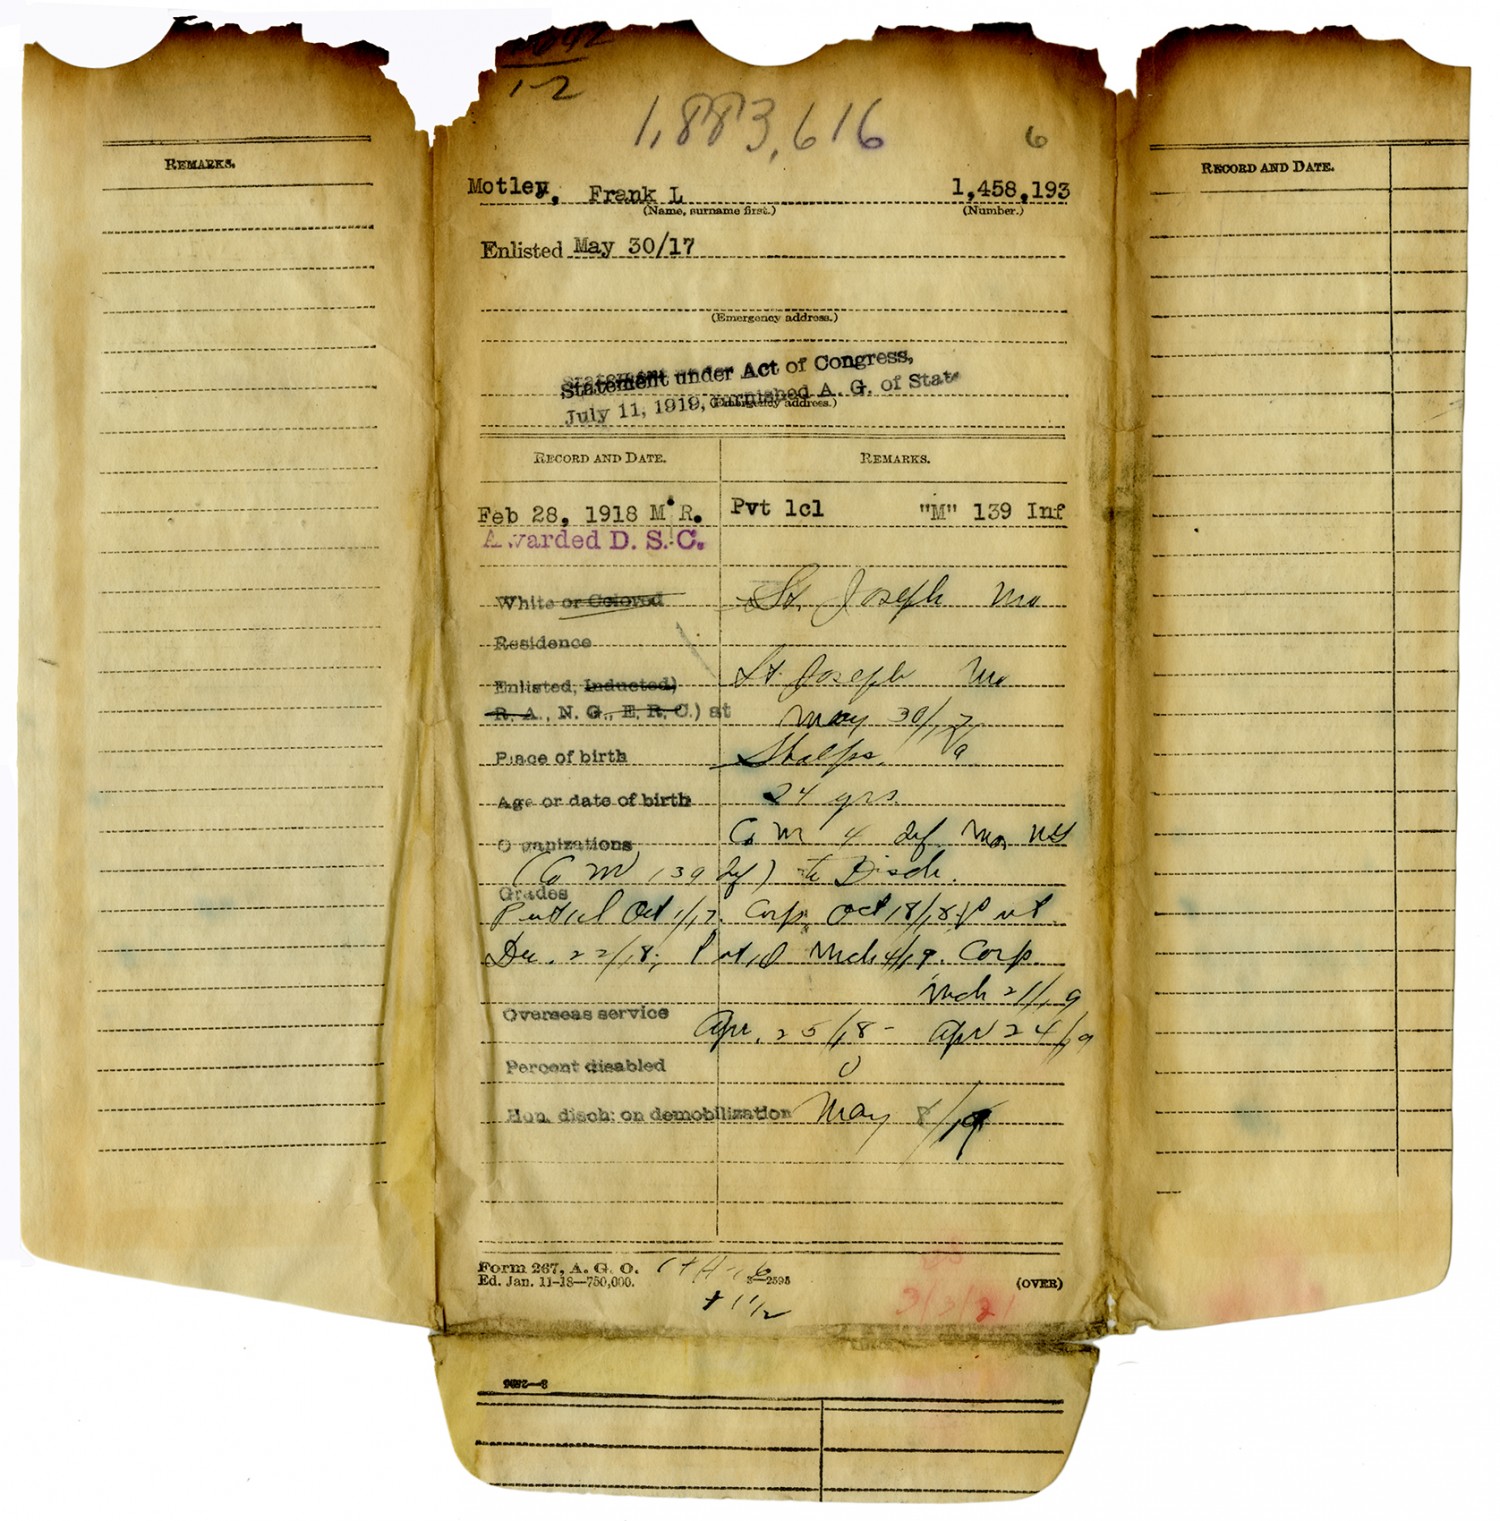 1-2
1,883,616
6
REMARKS.
Motley, Frank L 1,458,193
(Name, surname first.) (Number.)
Enlisted May 30/17
(Emergency address.)
Statement under Act of Congress,
July 11, 1919, furnished A. G. of State
(Emergency address.)
RECORD AND DATE. REMARKS.
Feb 28, 1918 M R. Pvt 1cl "M" 139 Inf
Awarded D. S. C.
White or Colored St. Joseph Mo
Residence
Enlisted, Inducted) St. Joseph Mo
R. A., N. G., E. R. C.) at May 30/17
Place of birth
Age or date of birth 24 yrs.
Organizations Co M 4 Inf Mo NG
(Co M 139 Inf) to Disch.
Grades
Pvt 1cl Oct 1/17. Corp. Oct 18/18; Pvt.
Dec. 22/18; Pvt 1cl Mch 4/19. Corp.
Mch 21/19
Overseas service Apr. 25/18 - Apr 24/19
Percent disabled 0
Hon. disch: on demobilization May 8/19
Form 267, A. G. O.
Ed. Jan. 11-18—750,000. 3—2595 (OVER)
3/3/21
RECORD AND DATE.